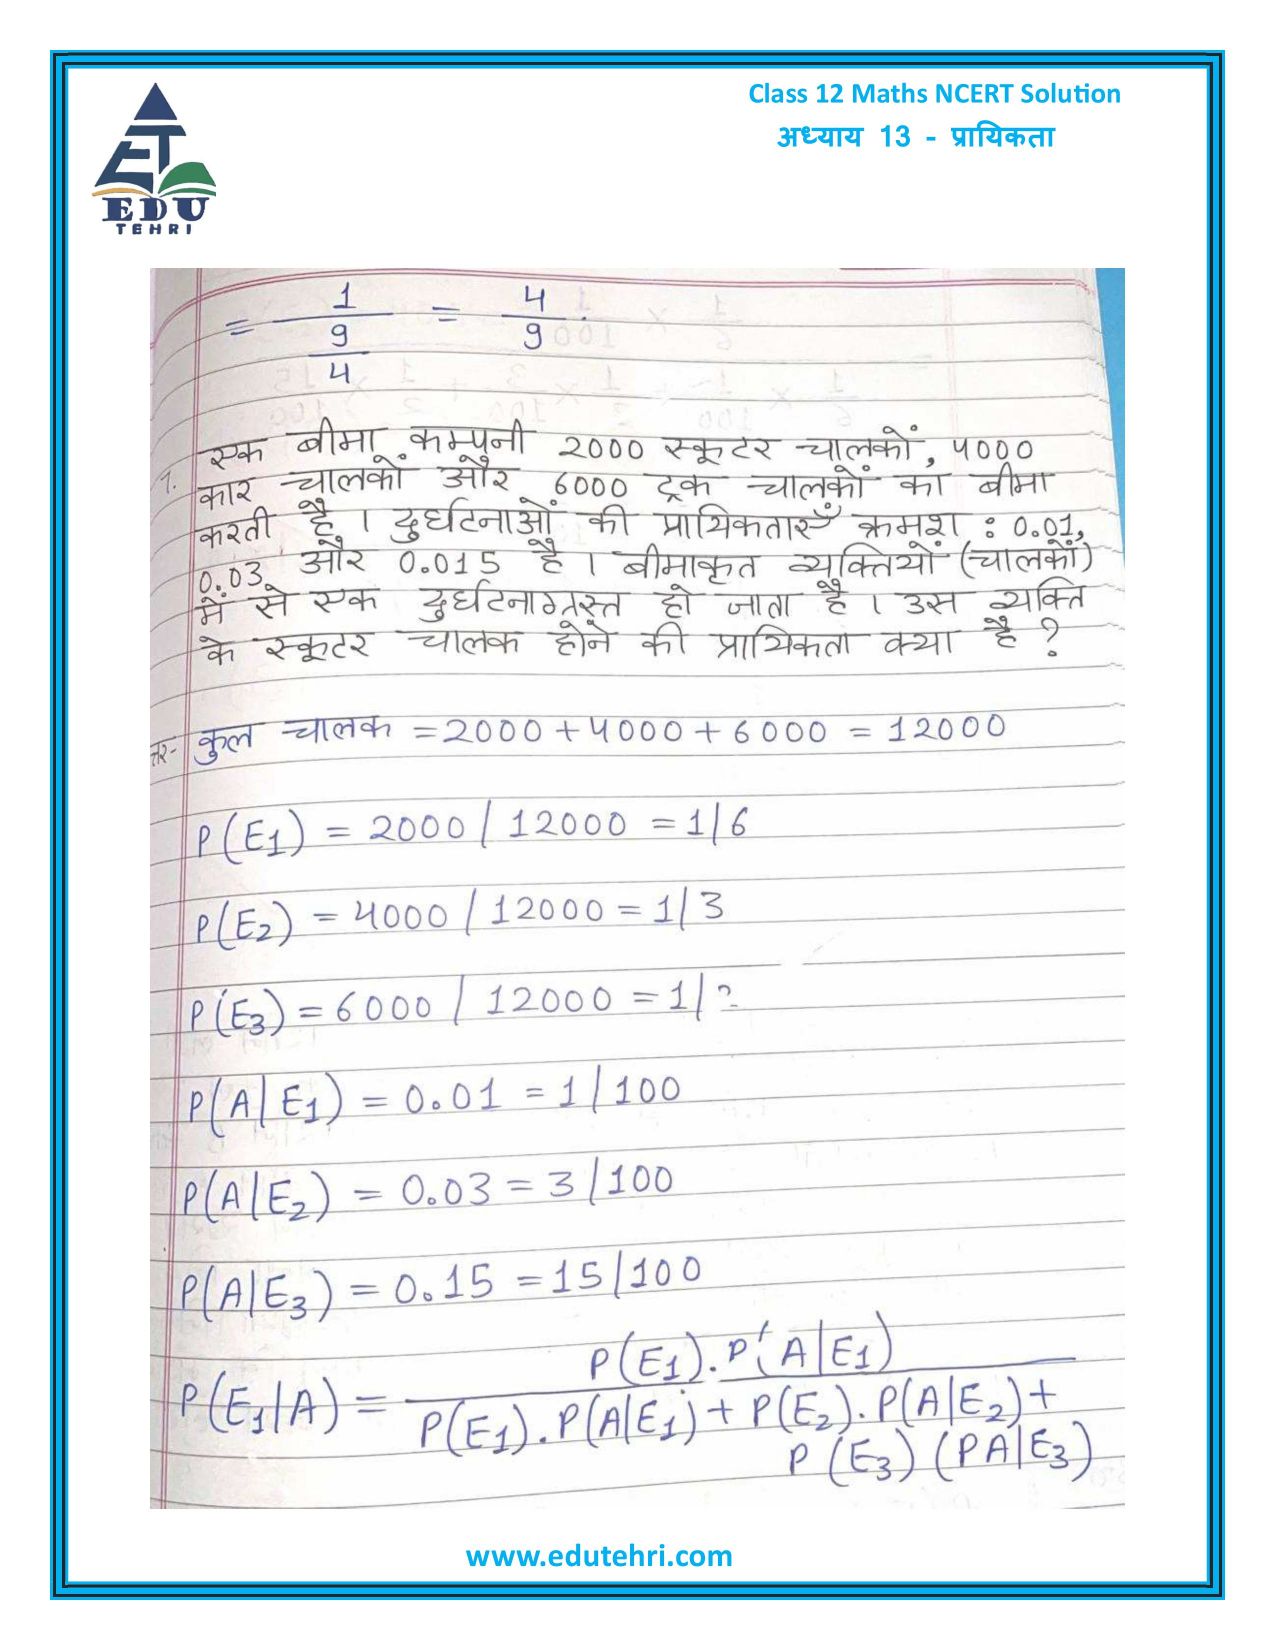 Class 12 Maths NCERT Solution
अध्याय 13 - प्रायिकता
EDU
TEHRI
= 1/(9/4) = 4/9
7. एक बीमा कम्पनी 2000 स्कूटर चालकों, 4000
कार चालकों और 6000 ट्रक चालकों का बीमा
करती है। दुर्घटनाओं की प्रायिकताएँ क्रमश : 0.01,
0.03 और 0.015 है। बीमाकृत व्यक्तियों (चालकों)
में से एक दुर्घटनाग्रस्त हो जाता है। उस व्यक्ति
के स्कूटर चालक होने की प्रायिकता क्या है ?
त्तर- कुल चालक = 2000 + 4000 + 6000 = 12000
P(E1) = 2000 / 12000 = 1/6
P(E2) = 4000 / 12000 = 1/3
P(E3) = 6000 / 12000 = 1/2
P(A|E1) = 0.01 = 1/100
P(A|E2) = 0.03 = 3/100
P(A|E3) = 0.15 = 15/100
P(E1).P(A|E1)
P(E1|A) =
P(E1).P(A|E1) + P(E2).P(A|E2) +
P(E3)(PA|E3)
www.edutehri.com